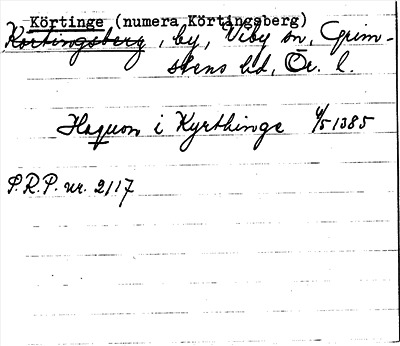 Körtinge (numera Körtingsberg)
Körtingsberg, by, Viby sn, Grim-
stens hd, Ör. l.
Haquon i Kyrthinge 4/5 1385
P.R.P. nr. 2117